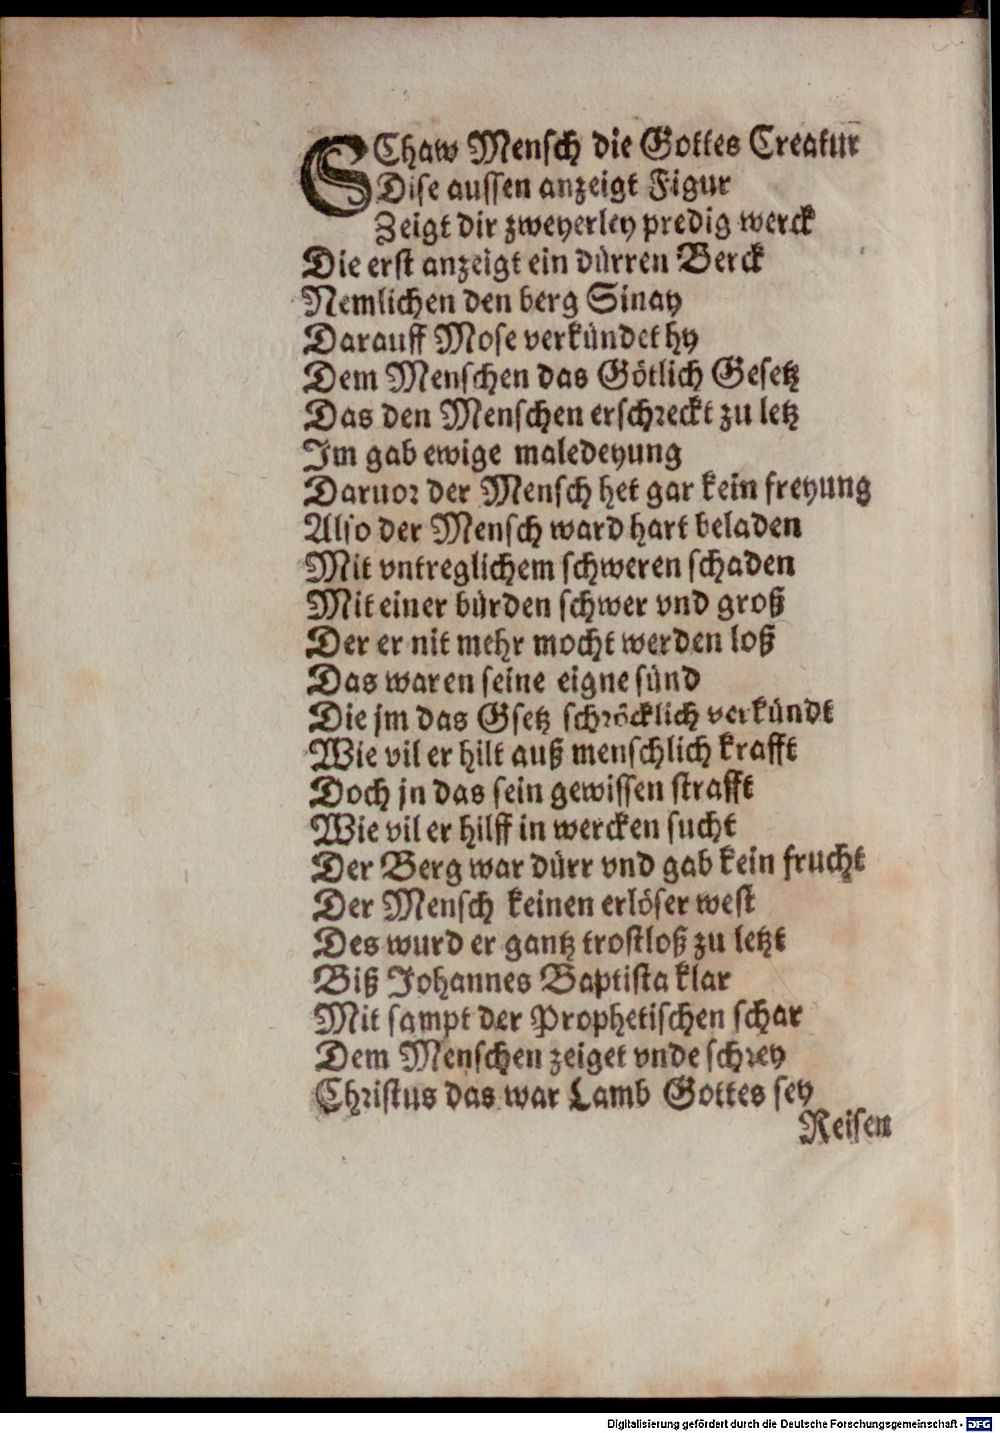 SChaw Mensch die Gottes Creatur
Dise aussen anzeigt Figur
Zeigt dir zweyerley predig werck
Die erst anzeigt ein dürren Berck
Nemlichen den berg Sinay
Darauff Mose verkündet hy
Dem Menschen das Götlich Gesetz
Das den Menschen erschreckt zu letz
Im gab ewige maledeyung
Daruor der Mensch het gar kein freyung
Also der Mensch ward hart beladen
Mit vntreglichem schweren schaden
Mit einer bürden schwer vnd groß
Der er nit mehr mocht werden loß
Das waren seine eigne sünd
Die jm das Gsetz schröcklich verkündt
Wie vil er hilt auß menschlich krafft
Doch jn das sein gewissen strafft
Wie vil er hilff in wercken sucht
Der Berg war dürr vnd gab kein frucht
Der Mensch keinen erlöser west
Des wurd er gantz trostloß zu letzt
Biß Johannes Baptista klar
Mit sampt der Prophetischen schar
Dem Menschen zeiget vnde schrey
Christus das war Lamb Gottes sey
Reisen
Digitalisierung gefördert durch die Deutsche Forschungsgemeinschaft - DFG